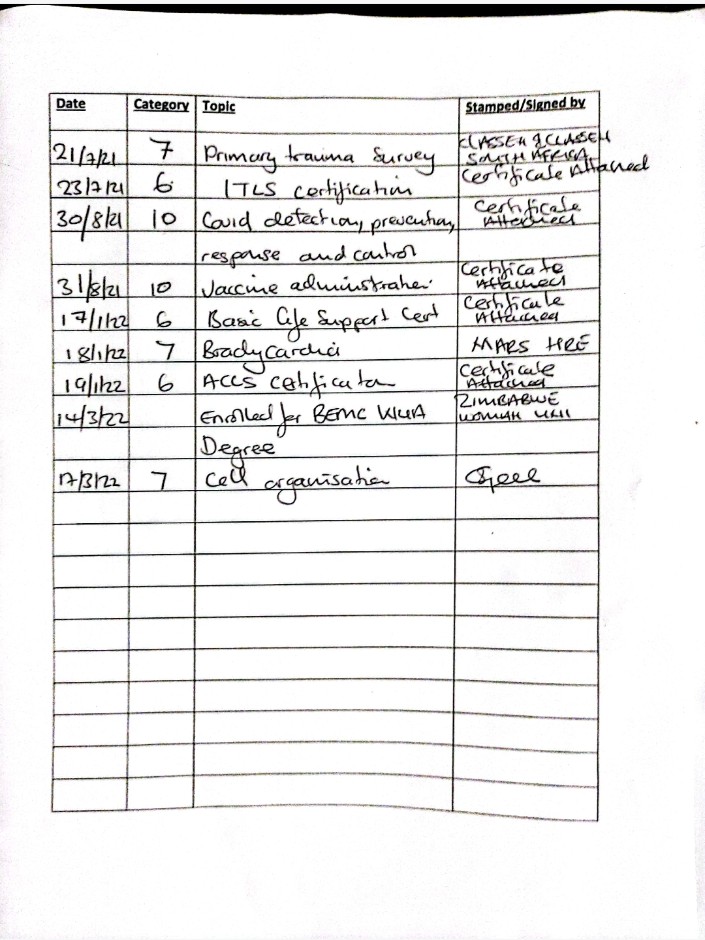 Date Category Topic Stamped/Signed by
CLASSEN & CLASSEN
21/7/21 7 Primary trauma Survey SOUTH AFRICA
23/7/21 6 ITLS certification Certificate Attached
30/8/21 10 Covid detection, prevention, Certificate
Attached
response and control
31/8/21 10 Vaccine administration Certificate
Attached
17/1/22 6 Basic Life Support Cert Certificate
Attached
18/1/22 7 Bradycardia MARS HRE
19/1/22 6 ACLS Certification Certificate
Attached
14/3/22 Enrolled for BEMC WUA ZIMBABWE
WOMAN
Degree
17/3/22 7 Cell organisation